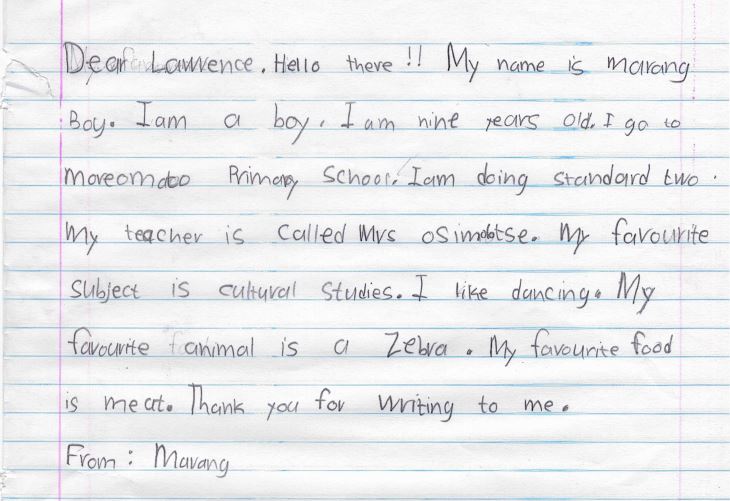 Dear Lawrence. Hello there!! My name is marang
Boy. I am a boy. I am nine years old. I go to
moreomoto Primary School. I am doing standard two.
My teacher is called Mrs osimotse. My favourite
subject is cultural studies. I like dancing. My
favourite animal is a Zebra. My favourite food
is meat. Thank you for writing to me.
From: Marang